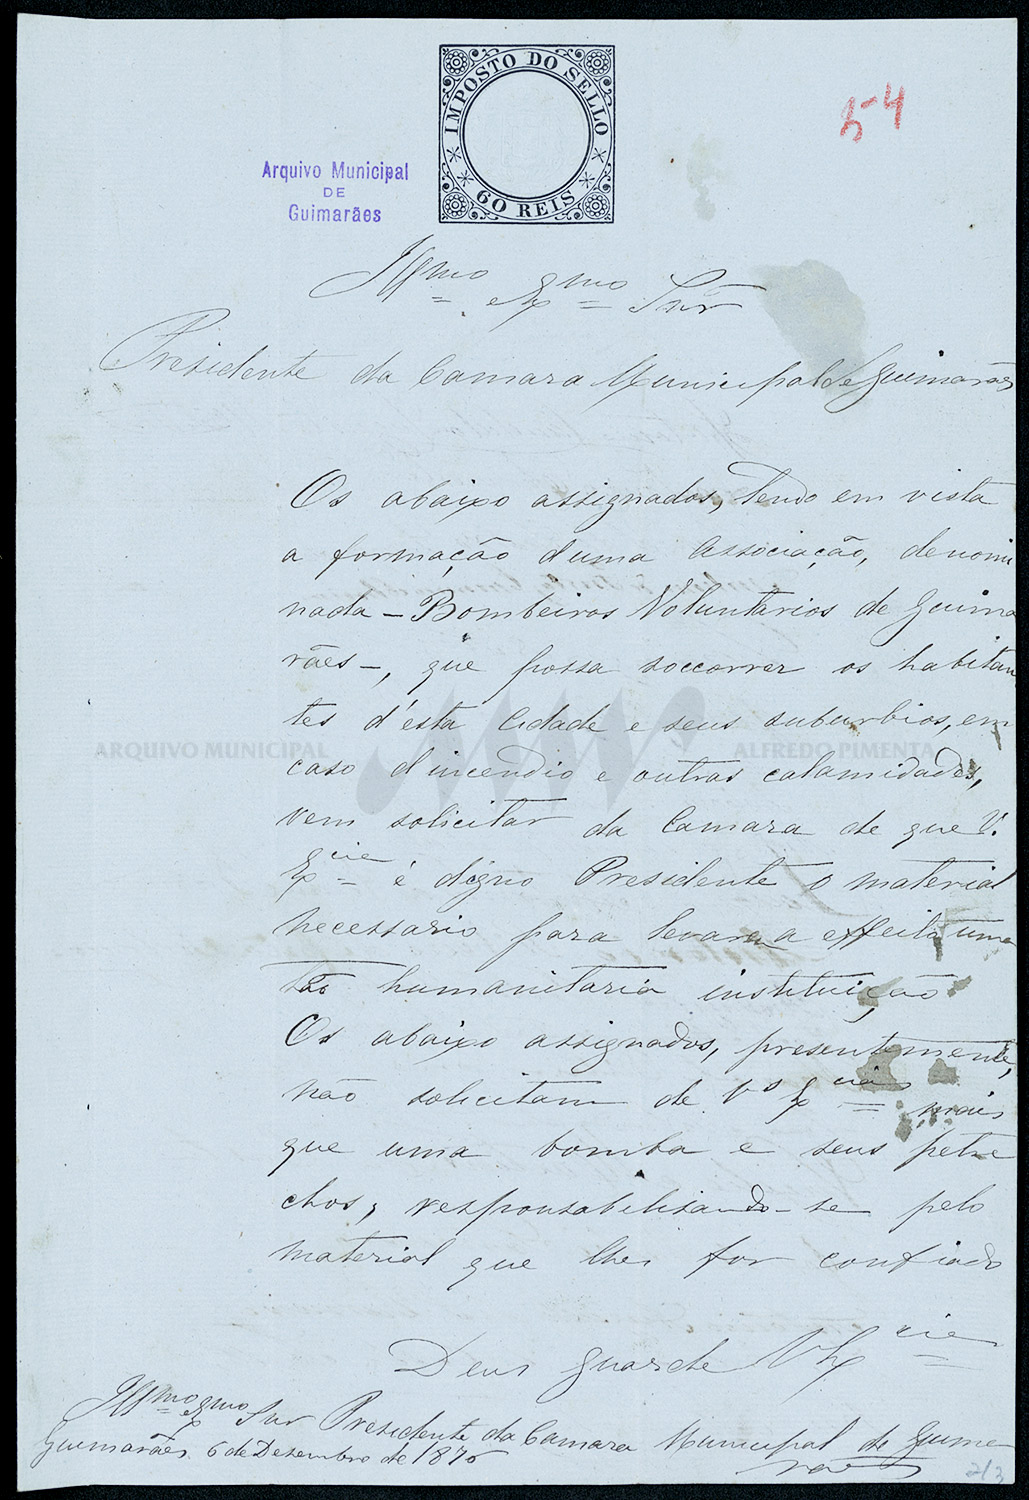 IMPOSTO DO SELLO
60 REIS
54
Arquivo Municipal
DE
Guimarães
Illmo e Exmo Snr
Presidente da Camara Municipal de Guimarães
Os abaixo assignados, tendo em vista
a formação d'uma Associação, denomi
nada - Bombeiros Voluntarios de Guima
rães -, que possa soccorrer os habitan
tes d'esta Cidade e seus suburbios, em
caso d'incendio e outras calamidades,
vem solicitar da Camara de que V.
Excia é digno Presidente o material
necessario para levarem a effeito uma
tão humanitaria instituição
Os abaixo assignados, presentemente,
não solicitam de Vas Excias mais
que uma bomba e seus petre
chos, responsabilisando-se pelo
material que lhes for confiado
Deus guarde V Excia
Illmo e Exmo Snr Presidente da Camara Municipal de Guima
rães
Guimarães 6 de Dezembro de 1876
2/3
ARQUIVO MUNICIPAL ALFREDO PIMENTA